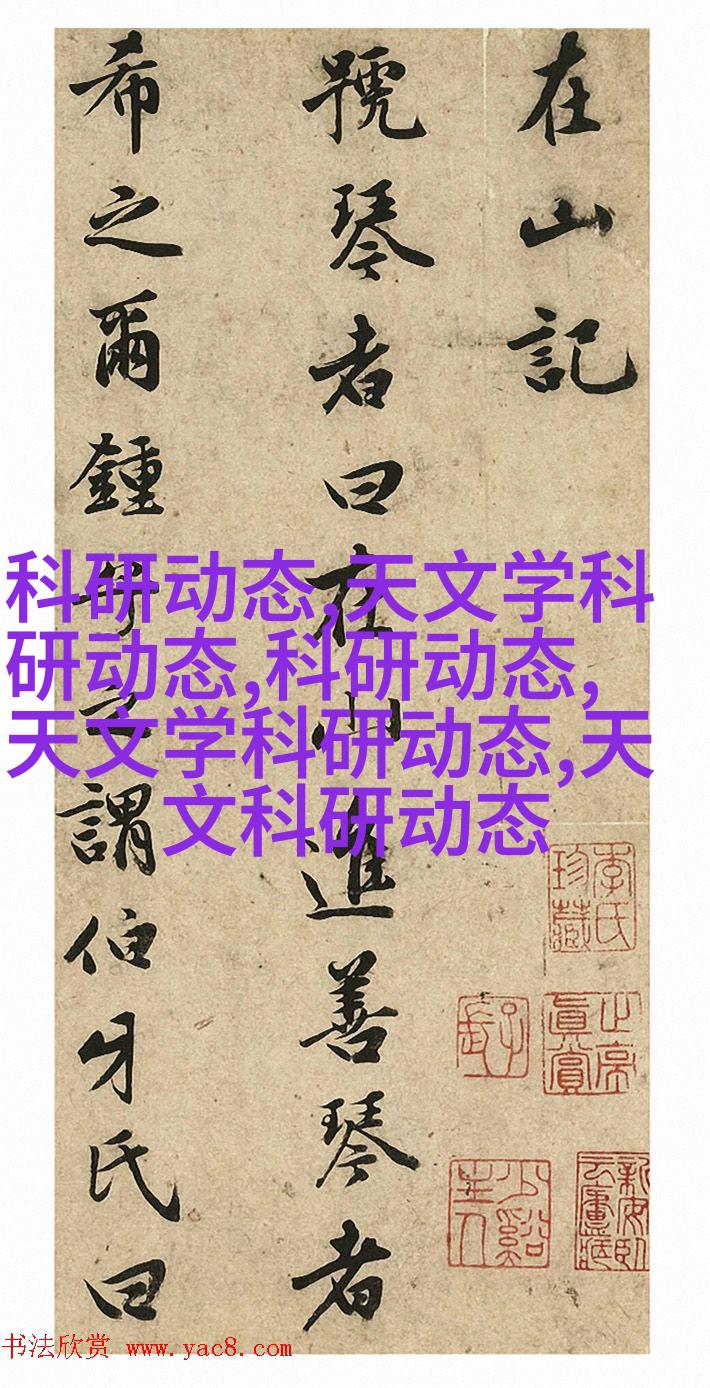 在山記
號琴者曰在山進善琴者
希之爾鍾之謂伯牙氏曰
科研动态,天文学科
研动态,科研动态,
天文学科研动态,天
文科研动态
李氏
珍藏
真賞
少谿
主人
书法欣赏 www.yac8.com